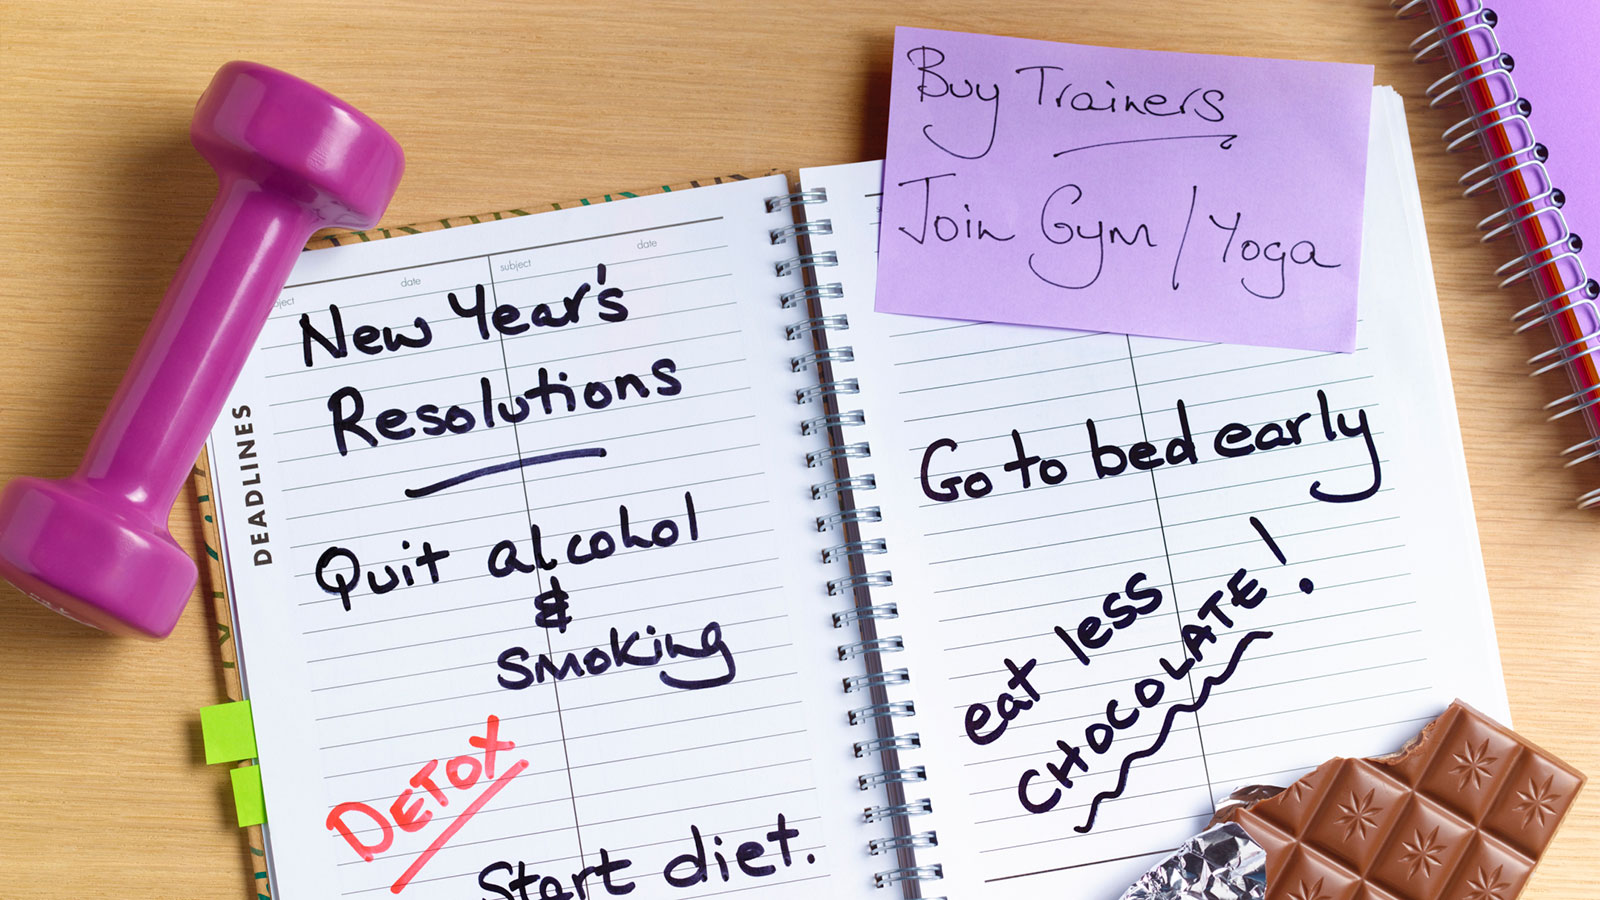 Buy Trainers
Join Gym / Yoga
ject date subject date
DEADLINES
New Year's
Resolutions
Quit alcohol
&
smoking
DETOX
Start diet.
Go to bed early
eat less
CHOCOLATE!